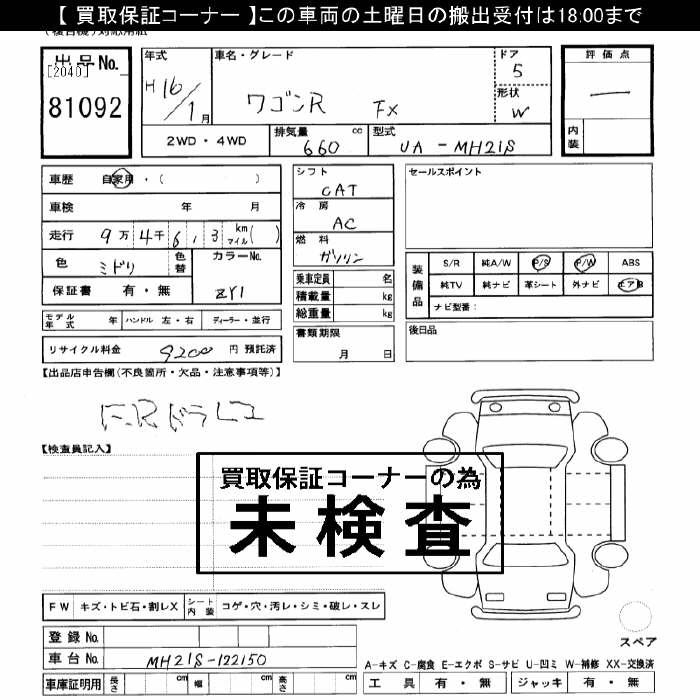 【 買取保証コーナー 】この車両の土曜日の搬出受付は18:00まで
出品No.
[2040]
81092
年式
H16/1月
車名・グレード
ワゴンR FX
ドア
5
形状
W
評価点
―
内装
2WD・4WD
排気量 660 cc
型式 UA-MH21S
車歴 自家用・( )
車検 年 月
走行 9万4千6,3 km マイル( )
色 ミドリ
色替
カラーNo. ZY1
保証書 有・無
モデル年式 年 ハンドル 左・右 ディーラー・並行
リサイクル料金 9200 円 預託済
シフト
CAT
冷房
AC
燃料
ガソリン
乗車定員 名
積載量 kg
総重量 kg
書類期限
月 日
セールスポイント
装備品
S/R 純A/W P/S P/W ABS
純TV 純ナビ 革シート 外ナビ エアB
ナビ型番：
後日品
【出品店申告欄(不良箇所・欠品・注意事項等)】
F.Rドラレコ
【検査員記入】
買取保証コーナーの為
未検査
FW キズ・トビ石・割レX シート内装 コゲ・穴・汚レ・シミ・破レ・スレ
登録No.
車台No. MH21S-122150
車庫証明用 長さ cm 幅 cm 高さ cm
スペア
A-キズ C-腐食 E-エクボ S-サビ U-凹ミ W-補修 XX-交換済
工具 有・無 ジャッキ 有・無